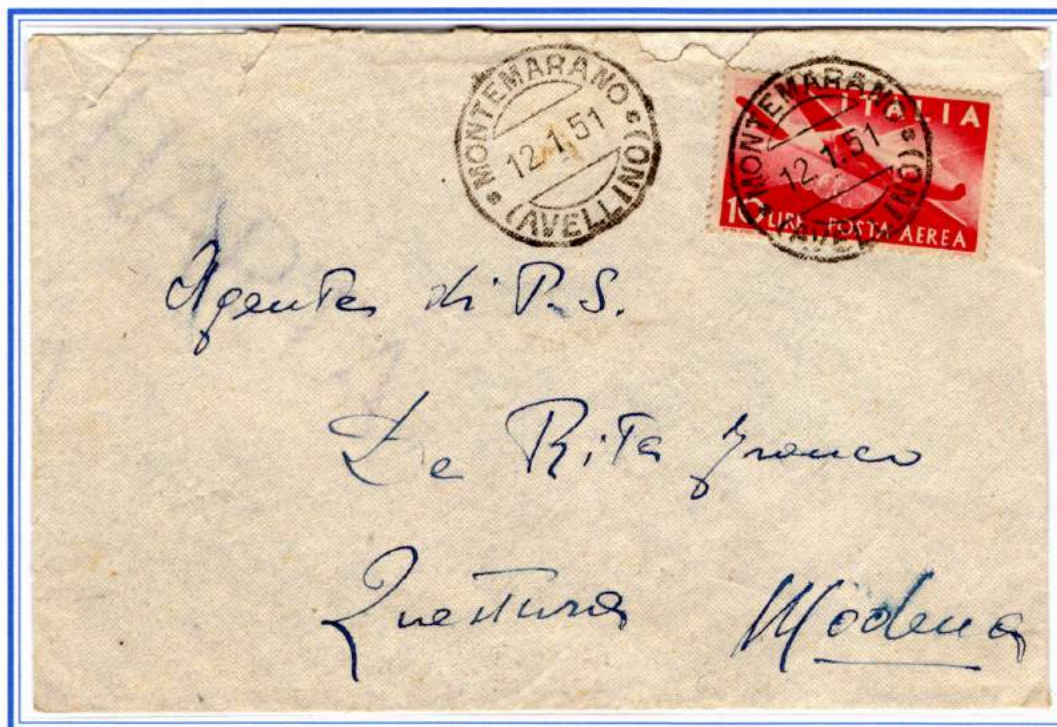 * MONTEMARANO * (AVELLINO)
12.1.51
* MONTEMARANO * (AVELLINO)
12.1.51
ITALIA
10 LIRE POSTA AEREA
Agente di P.S.
De Rita Franco
Questura Modena